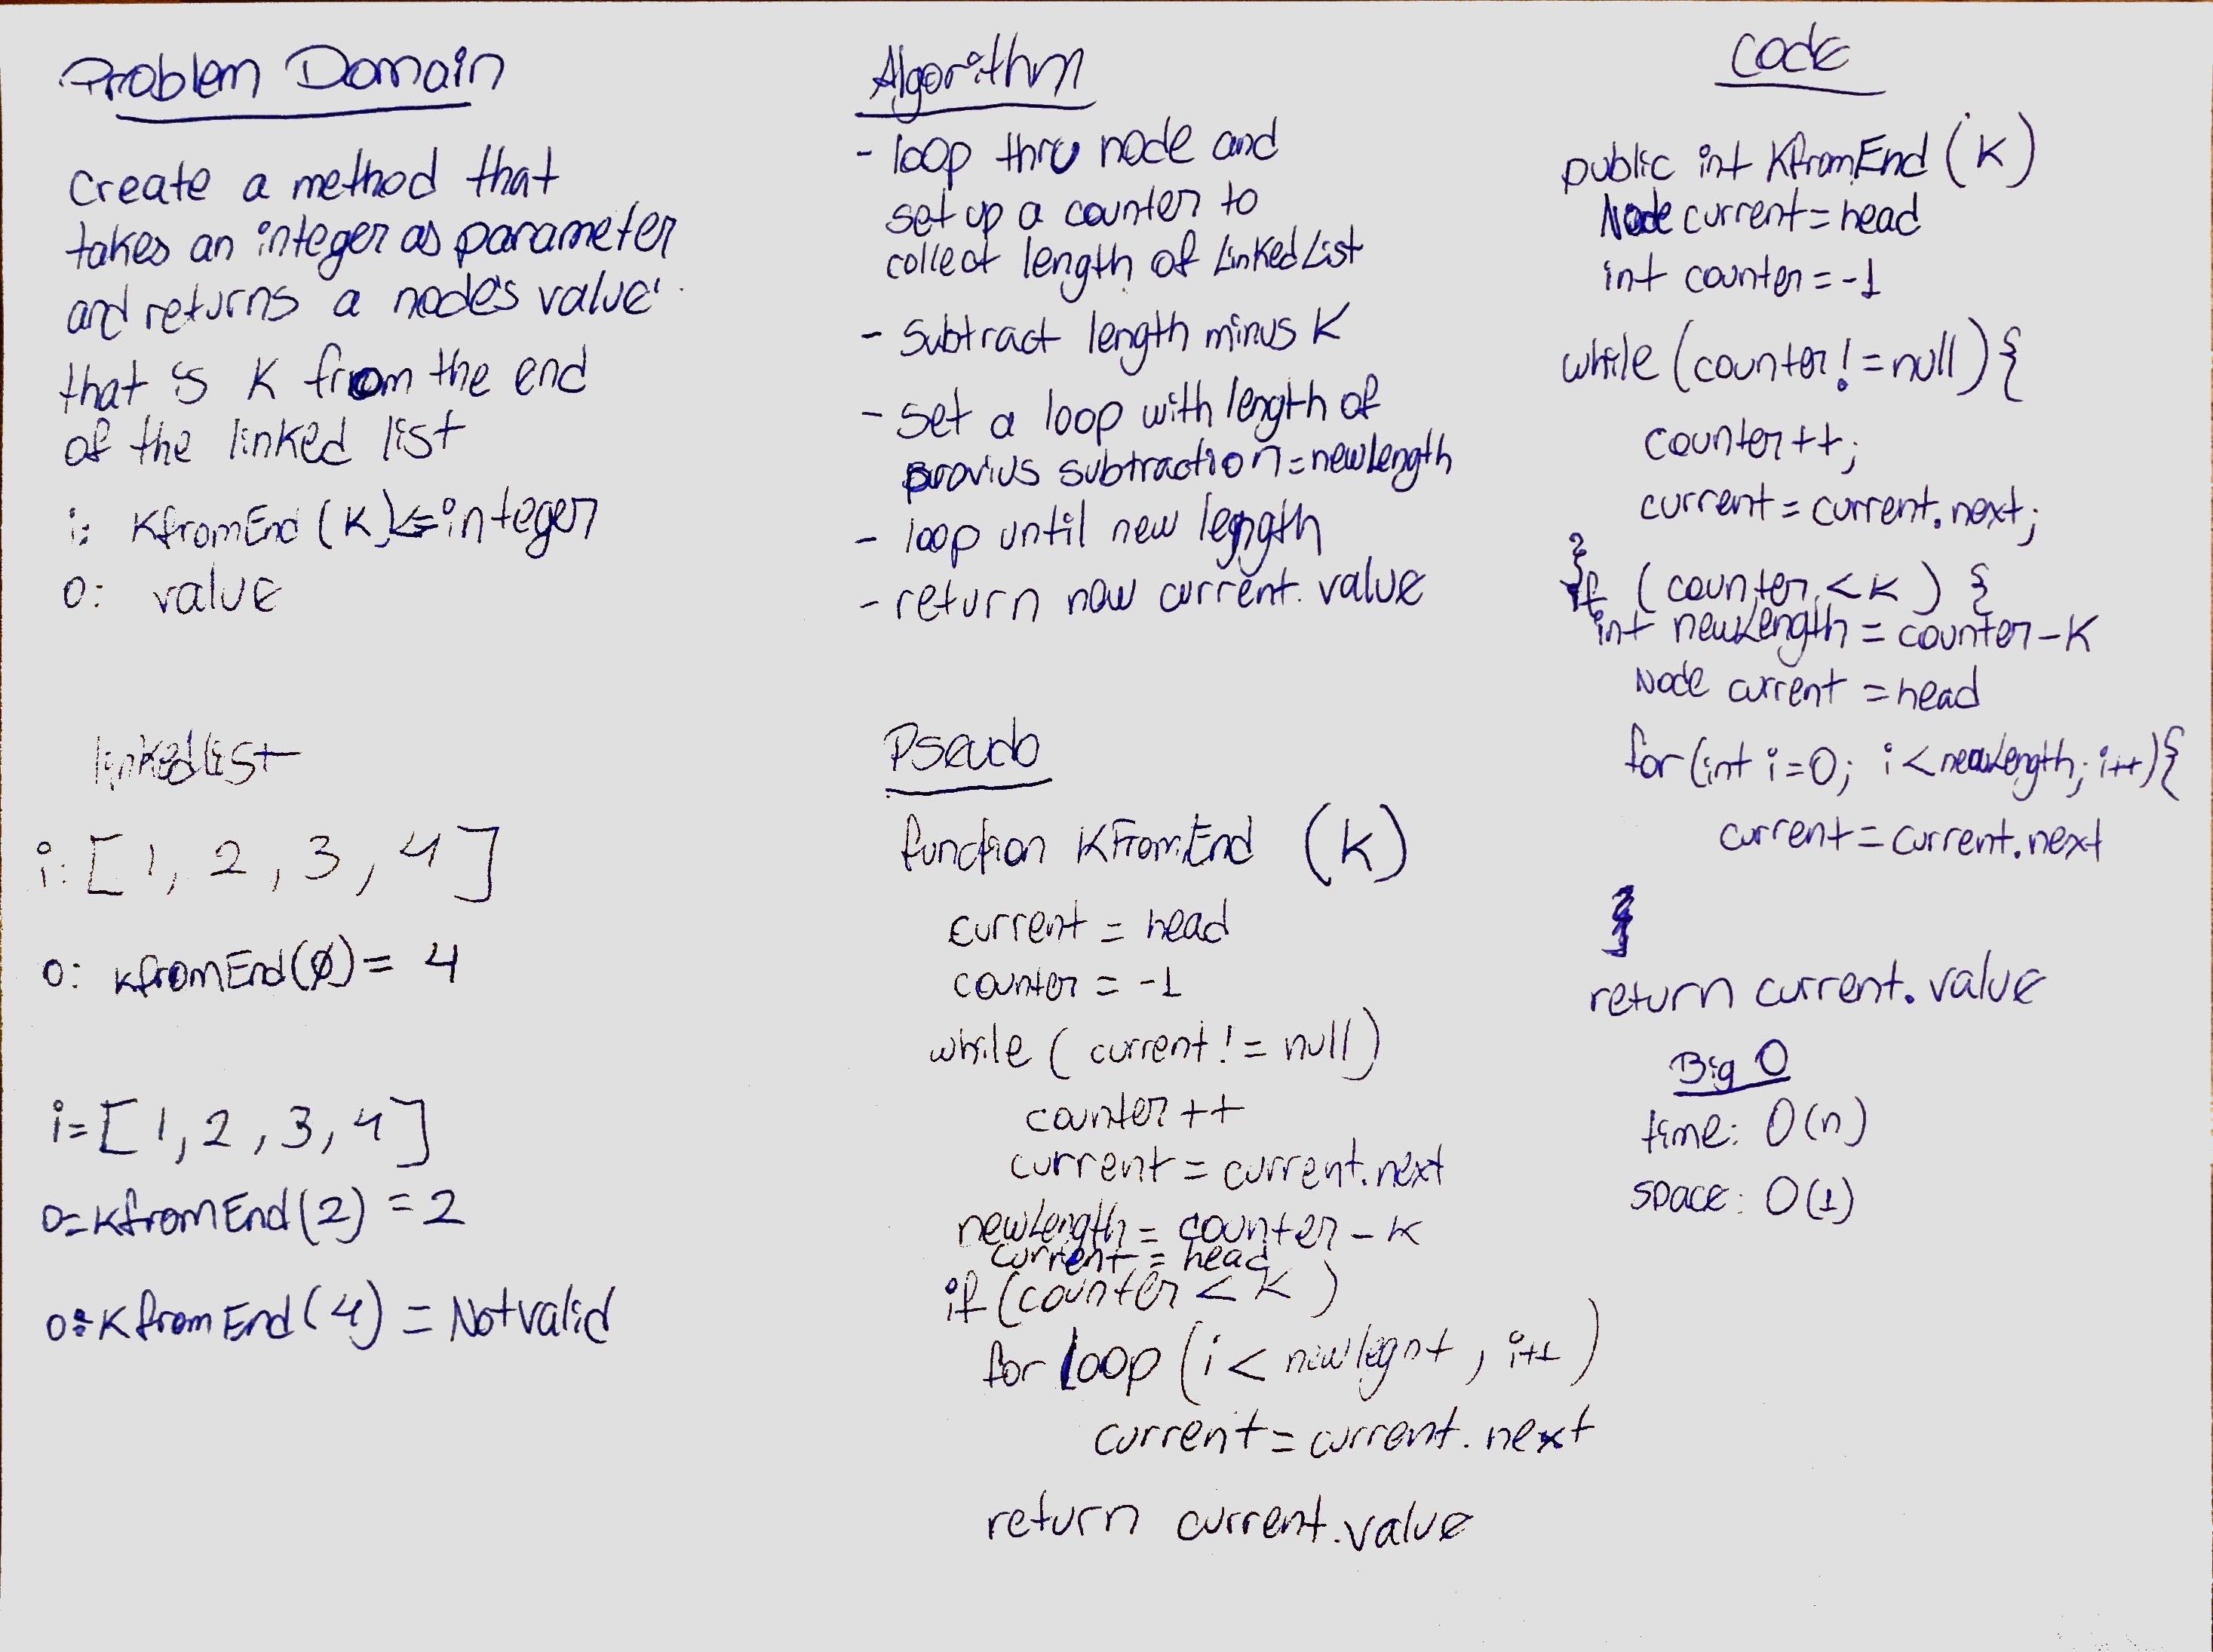 Problem Domain
create a method that
takes an integer as parameter
and returns a node's value
that is K from the end
of the linked list
i: KfromEnd (K) K=integer
O: value
linked list
i: [1, 2, 3, 4]
O: kfromEnd(0) = 4
i=[1, 2, 3, 4]
O=kfromEnd(2) = 2
O= KfromEnd(4) = Notvalid
Algorithm
- loop thru node and
set up a counter to
collect length of Linked List
- subtract length minus K
- set a loop with length of
provius subtraction=newLength
- loop until new legngth
- return now current. value
Pseudo
function KFromEnd (K)
current = head
counter = -1
while ( current != null)
counter ++
current = current.next
newLength = counter - K
current = head
if (counter < K )
for loop (i < newlegnt, i++)
current = current. next
return current.value
Code
public int KfromEnd (K)
Node current = head
int counter = -1
while (counter != null) {
counter ++;
current = current.next;
}
if (counter < K) {
int newLength = counter - K
Node current = head
for (int i=0; i < newLength; i++){
current = current.next
}
return current. value
Big O
time: O(n)
space: O(1)